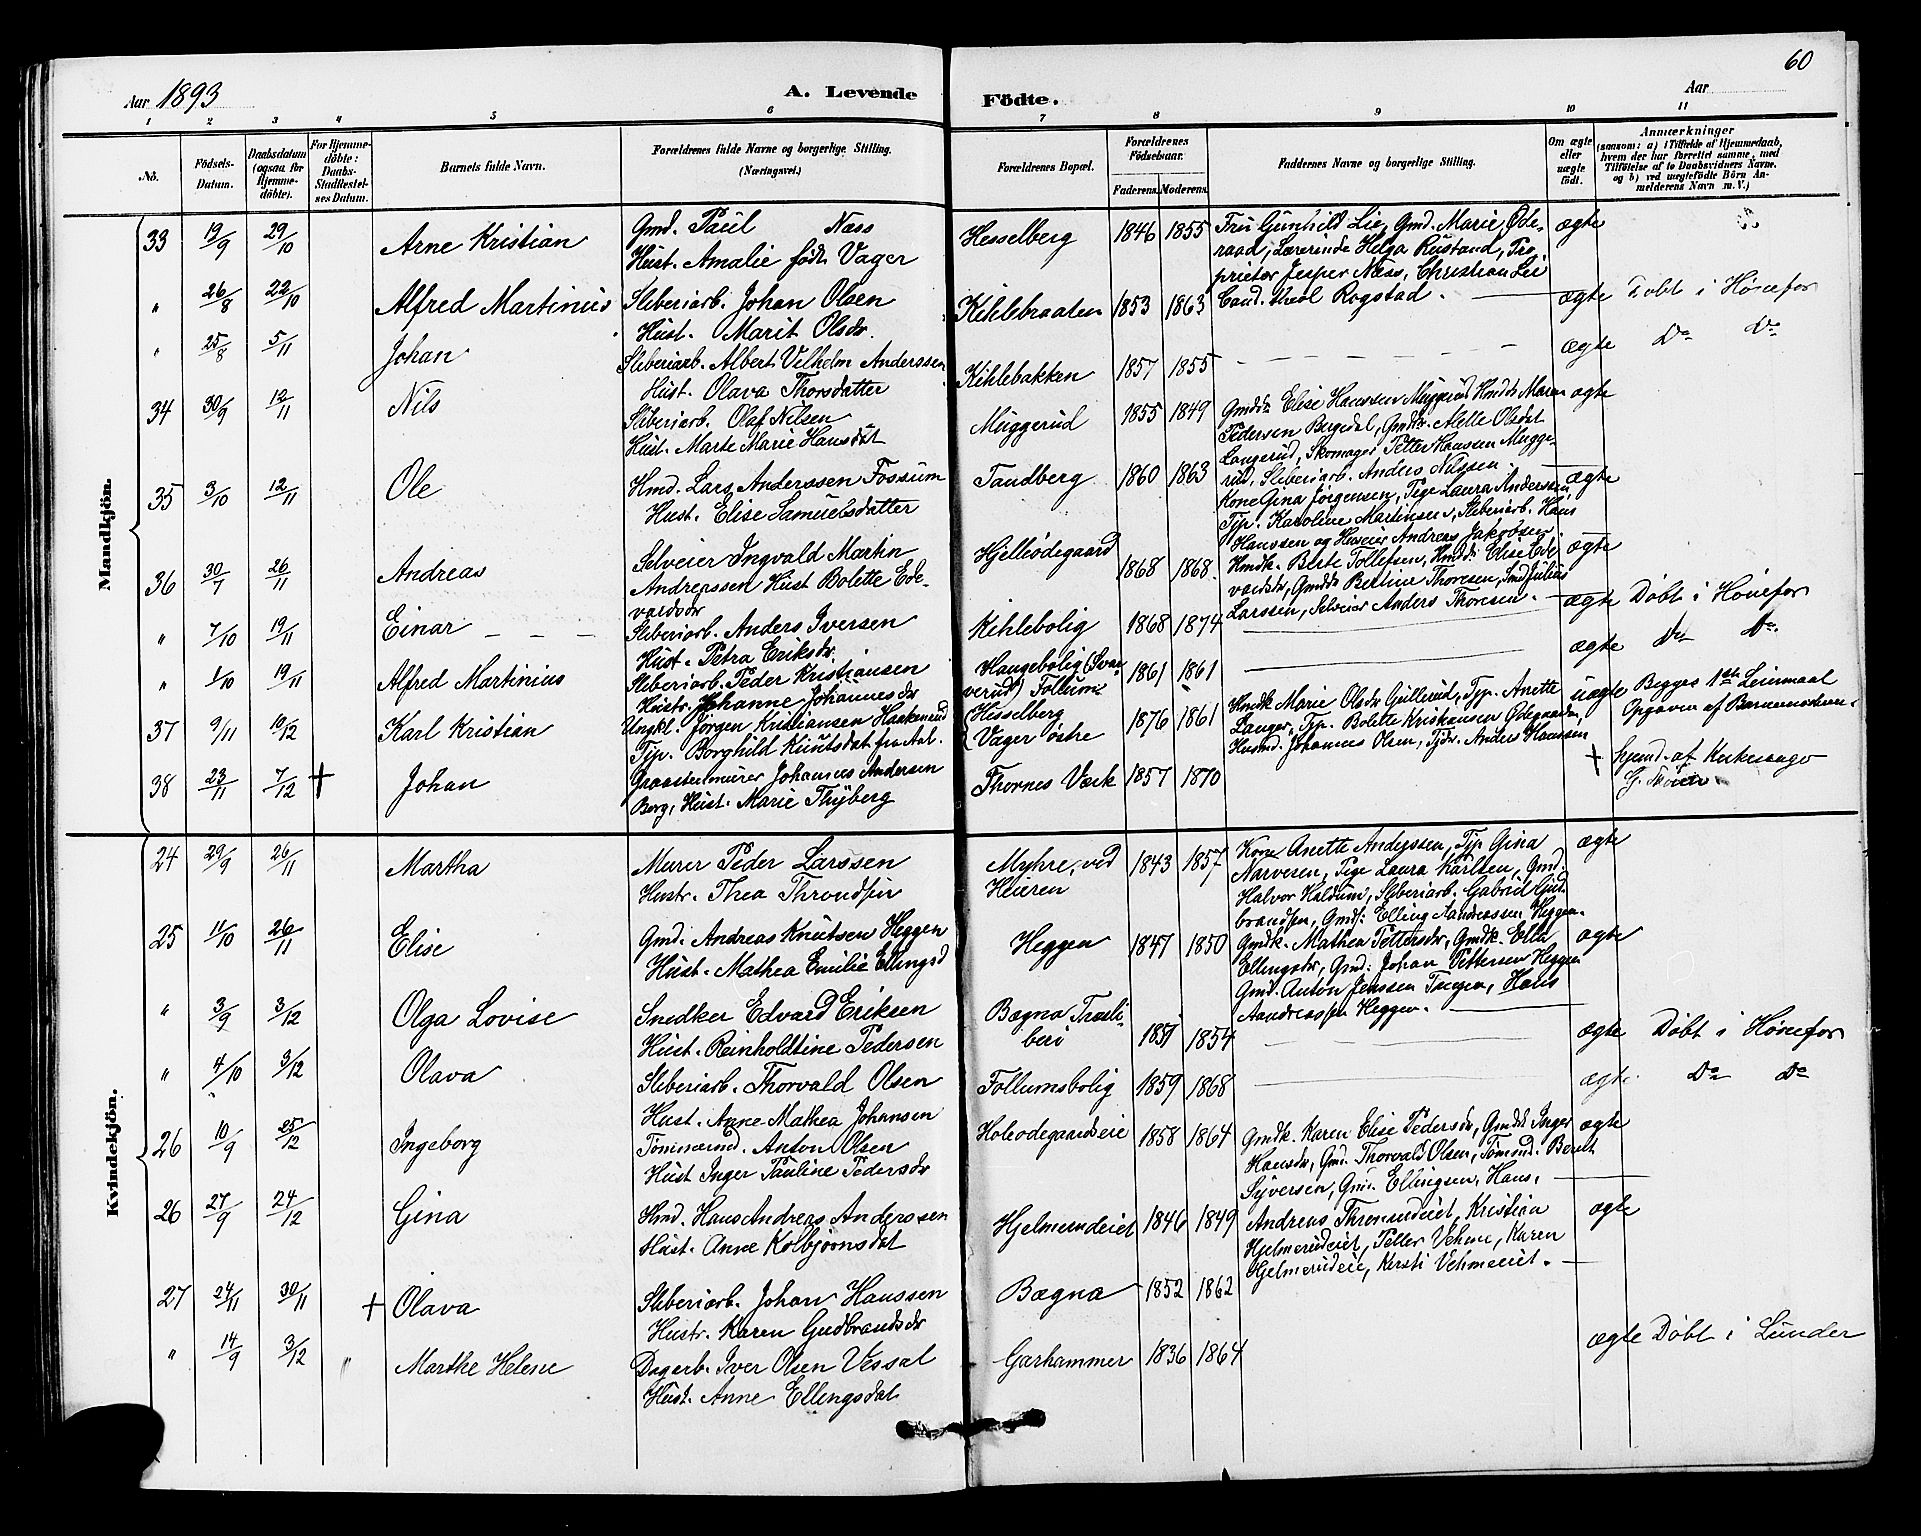 60
Aar 1893
A. Levende
Födte.
Aar
1 2 3 4 5 6 7 8 9 10 11
No.
Födsels-Datum.
Daabsdatum (ogsaa for Hjemmedöbte).
For Hjemmedöbte: Daabs-Stadfæstelses Datum.
Barnets fulde Navn.
Forældrenes fulde Navne og borgerlige Stilling. (Næringsvei.)
Forældrenes Bopæl.
Forældrenes Födselsaar.
Faderens. Moderens.
Faddernes Navne og borgerlige Stilling.
Om ægte eller uægte födt.
Anmærkninger (saasom: a) i Tilfælde af Hjemmedaab, hvem der har forrettet samme, med Tilföielse af to Daabsvidners Navne, og b) ved uægtefödte Börn Anmelderens Navn m. V.)
Mandkjön.
33 19/9 29/10 Arne Kristian
Gmd. Paul Næss
Hust. Amalie født Vager
Hesselberg 1846 1855
Fru Gunhild Lie, Gmd. Marie Øde-
raad, Lærerinde Helga Rustand, Pro-
prietær Jesper Næss, Christian Lie
Cand. theol Rogstad.
ægte
" 26/8 22/10 Alfred Martinius
Sliberiarb. Johan Olsen
Hust. Marit Olsdr.
Kihlebraaten 1853 1863 ægte Døbt i Hønefos
" 25/8 5/11 Johan
Sliberiarb. Albert Vilhelm Anderssen
Hust. Olava Thorsdatter
Kihlebakken 1857 1855 ægte Do Do
34 30/9 12/11 Nils
Sliberiarb. Olaf Nilsen
Hust. Marte Marie Hansdat
Muggerud 1855 1849
Gmdd. Elise Hanssen Muggerud, Hmdd. Maren
Pedersen Bergedal, Gmdk. Olsdat
Langerud, Skomager Petter Hanssen Mugge-
rud, Sliberiarb. Anders Nilssen
ægte
35 3/10 12/11 Ole
Hmd. Lars Anderssen Fossum
Hust. Elise Samuelsdatter
Tandberg 1860 1863
Kone Gina Jörgensen, Pige Laura Anderssen,
Tjp. Karoline Martinsen, Sliberiarb. Hans
Hanssen og Huseier Andreas Jakobsen
ægte
36 30/7 26/11 Andreas
Selveier Ingvald Martin
Andreassen Hust Bolette Ede-
vardsdr
Hjelleødegaard 1868 1868
Hmdk. Berte Tollefsen, Hmdd. Elise Ede-
vardsdr, Gmdd. Bettine Thoresen, Smd Julius
Larssen, Selveier Anders Thoresen.
ægte
" 7/10 19/11 Einar
Sliberiarb. Anders Iversen
Hust. Petra Eriksdr.
Kihlebolig 1868 1874 ægte Døbt i Hønefos
" 1/10 19/11 Alfred Martinius
Sliberiarb. Peder Kristiansen
Hustr. Johanne Johannesdr
Haugebolig (Svar-
verud) Follum 1861 1861 ægte Do Do.
37 9/11 10/12 Karl Kristian
Ungkl. Jørgen Kristiansen Haakenrud
Tjp. Borghild Knutsdat fra Aal.
Hesselberg
Vager østre 1876 1861
Hmdk Marie Olsdr Gullerud, Tjp. Anette
Langer, Tjp. Bolette Kristiansen Ødegaarden,
Husmd. Johannes Olsen, Tjdr. Anders Hanssen
uægte Begges 1ste Leiermaal
Opgaven af Barnemoderen.
38 23/11 7/12 † Johan
Graastensmurer Johannes Andersen
Berg, Hust. Marie Thyberg
Thornes Værk 1857 1870
† hjemd. af Kirkesanger
G.
Kvindekjön.
24 29/9 26/11 Martha
Murer Peder Larssen
Hustr. Thea Throndsen
Myhre, ved
Heieren 1843 1857
Kone Anette Anderssen, Tjp Gina
Narvesen, Pige Laura Karlsen, Gmd.
Halvor Haldum, Sliberiarb. Gabriel Gud-
brandsen, Gmds: Elling Aandreassen Heggen.
ægte
25 11/10 26/11 Elise
Gmd. Andreas Knutsen Heggen
Hust. Mathea Emilie Ellingsd
Heggen 1847 1850
Gmdk. Mathea Pettersdr, Gmdk. Ella
Ellingsdr, Gmd: Johan Pettersen Heggen
Gmd. Anton Jenssen Tangen, Hans
Aandreassen Heggen.
ægte
" 3/9 3/12 Olga Lovise
Snedker Edvard Eriksen
Hust. Reinholdtine Pedersen
Bægna Træsli-
beri 1851 1854 ægte Døbt i Hønefos
" 4/10 3/12 Olava
Sliberiarb. Thorvald Olsen
Hust. Anne Mathea Johansen
Follumsbolig 1859 1868 ægte Do Do
26 10/9 25/12 Ingeborg
Tømmermd. Anton Olsen
Hust Inger Pauline Pedersdr
Holeødegaardseie 1858 1864
Gmdk. Karen Elise Pedersdr, Gmdd. Inger
Hansdr, Gmd. Thorvald Olsen, Tømmd. Bernt
Syversen, Gmd. Ellingsen, Hans.
ægte
26 27/9 24/12 Gina
Hmd. Hans Andreas Anderssen
Hust. Anne Kolbjørnsdat
Hjelmerudeiet 1846 1849
Andreas Thronrudeiet, Kristian
Hjelmerudeiet, Petter Vehme, Karen
Hjelmerudeie, Kersti Vehmeeiet.
ægte
27 24/11 30/11 † Olava
Sliberiarb. Johan Hanssen
Hustr. Karen Gudbrandsdr
Bægna 1852 1862
" 14/9 3/12 " Marthe Helene
Dagarb. Iver Olsen Vessal
Hust. Anne Ellingsdat
Garhammer 1836 1864 ægte Døbt i Lunder